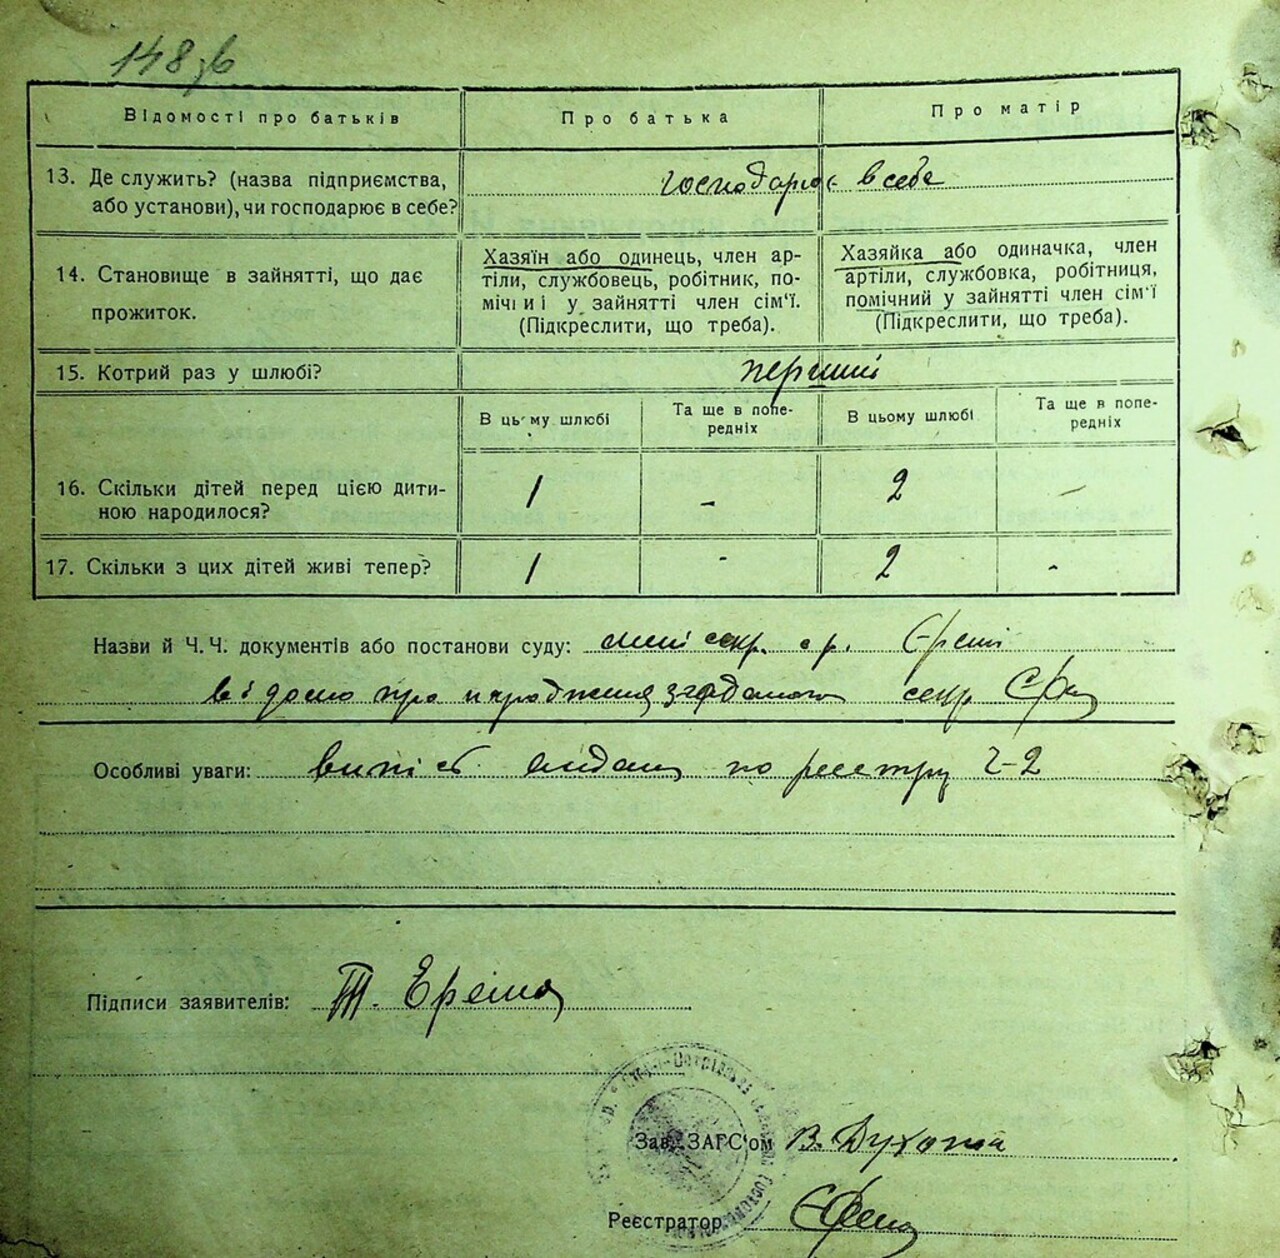 148 зв
Відомості про батьків
Про батька
Про матір
13. Де служить? (назва підприємства,
або установи), чи господарює в себе?
господарює в себе
14. Становище в зайнятті, що дає
прожиток.
Хазяїн або одинець, член ар-
тілі, службовець, робітник, по-
мічний у зайнятті член сім'ї.
(Підкреслити, що треба).
Хазяйка або одиначка, член
артілі, службовка, робітниця,
помічний у зайнятті член сім'ї
(Підкреслити, що треба).
15. Котрий раз у шлюбі?
перший
В цьому шлюбі
Та ще в попе-
редніх
В цьому шлюбі
Та ще в попе-
редніх
16. Скільки дітей перед цією дити-
ною народилося?
1 - 2 -
17. Скільки з цих дітей живі тепер?
1 - 2 -
Назви й Ч. Ч. документів або постанови суду: секр. с р.
відомо про народження секр
Особливі уваги: випис видан по реєстру Ч-2
Підписи заявителів: Т.
Зав. ЗАГС'ом В.
Реєстратор